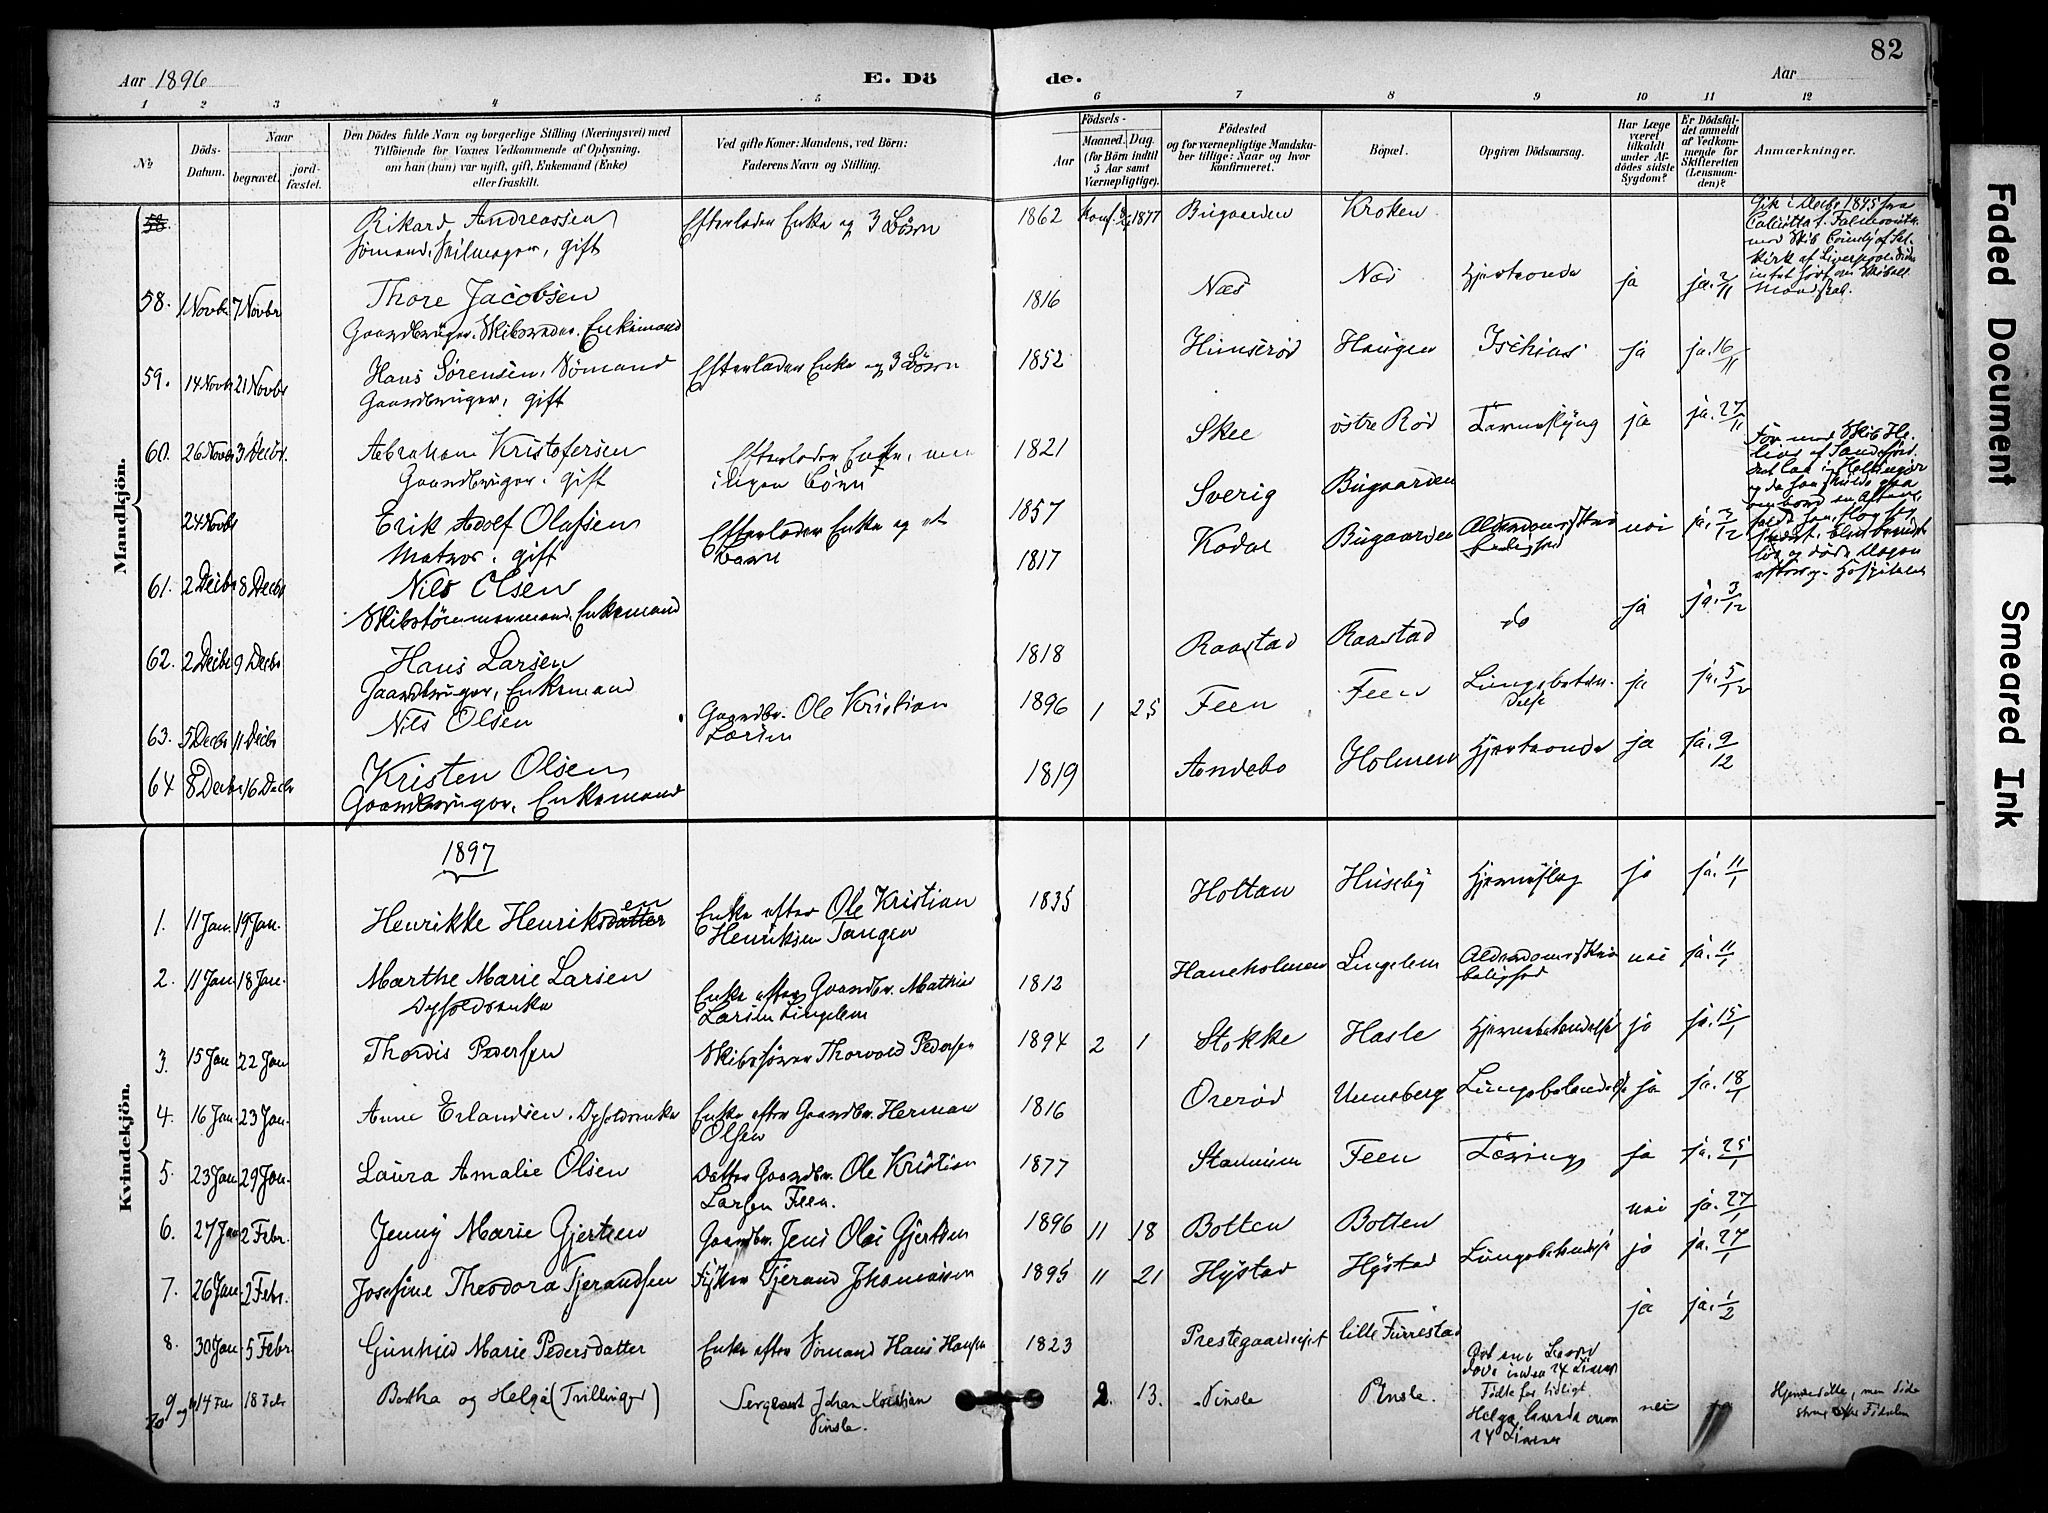 82
Aar 1896
E. Dö de.
Aar
1 2 3 4 5 6 7 8 9 10 11 12
No
Döds-Datum.
Naar
begravet.
jord-fæstet.
Den Dödes fulde Navn og borgerlige Stilling (Næringsvei) med
Tilföiende for Voxnes Vedkommende af Oplysning,
om han (hun) var ugift, gift, Enkemand (Enke)
eller fraskilt.
Ved gifte Koner: Mandens, ved Börn:
Faderens Navn og Stilling.
Födsels-
Aar
Maaned. Dag.
(for Börn indtil
5 Aar samt
Værnepligtige).
Födested
og for værnepligtige Mandska-
ber tillige: Naar og hvor
konfirmeret.
Bopæl.
Opgiven Dödsaarsag.
Har Læge
været
tilkaldt
under Af-
dödes sidste
Sygdom?
Er Dödsfal-
det anmeldt
af Vedkom-
mende for
Skifteretten
(Lensman-
den)?
Anmærkninger.
Mandkjön.
58. Rikard Andreassen Efterlader Enke og 3 Börn 1862 Konf. 1877 Bugaarden Kroken
Sømand, Seilmager, gift
58. 1 Novbr 7 Novbr Thore Jacobsen 1816 Næs Næs Hjerteonde ja ja. 2/11
Gaardbruger. Skibsreder. Enkemand
59. 14 Novbr 21 Novbr Hans Sørensen, Sømand Efterlader Enke og 3 Børn 1852 Himserød Haugen Ischias ja ja. 16/11
Gaardbruger, gift
60. 26 Novbr 3 Decbr. Abraham Kristofersen Efterlader Enke, men 1821 Skee østre Rød ja ja. 27/11
Gaardbruger. gift ingen Børn
24 Novbr Erik Adolf Olafsen Efterlader Enke og et 1857 Sverig Bugaarden
Matros. gift Barn
61. 2 Decbr 8 Decbr Nils Olsen 1817 Kodal Bugaarden nei ja. 3/12
Skibstømmermand, Enkemand
62. 2 Decbr 9 Decbr Hans Larsen 1818 Raastad Raastad do ja ja. 3/12
Gaardbruger, Enkemand
63. 5 Decbr 11 Decbr Nils Olsen Gaardbr. Ole Kristian 1896 1 25 Feen Feen Lungebetæn- ja ja. 5/12
Larsen delse
64 8 Decbr 16 Decbr Kristen Olsen 1819 Andebo Holmen Hjerteonde ja ja. 9/12
Gaardbruger, Enkemand
Kvindekjön.
1897
1. 11 Jan. 19 Jan. Henrikke Henriksdatter Enke efter Ole Kristian 1835 Holtan Huseby Hjerneslag ja ja. 11/1
Henriksen Tangen
2. 11 Jan 18 Jan. Marthe Marie Larsen Enke efter Gaardbr. Mathis 1812 Haneholmen Lingelem nei ja. 11/1
Larsen Lingelem
3. 15 Jan 22 Jan Thordis Pedersen Skibsfører Thorvald Pedersen 1894 2 1 Stokke Hasle ja ja. 15/1
4. 16 Jan 23 Jan. Anne Erlandsen. Enke efter Gaardbr. Herman 1816 Orerød Unneberg Lungebetændelse ja ja. 18/1
Olsen
5. 23 Jan 29 Jan. Laura Amalie Olsen Datter Gaardbr. Ole Kristian 1877 Stamnum Feen Tæring ja ja. 25/1
Larsen Feen.
6. 27 Jan 2 Febr. Jenny Marie Gjertsen Gaardbr. Jens Olai Gjertsen 1896 11 18 Botten Botten nei ja. 27/1
7. 26 Jan 2 Febr. Josefine Theodora Tjerandsen Fisker Tjerand Johannessen 1895 11 21 Hystad Hystad Lungebetændelse ja ja. 27/1
8. 30 Jan 5 Febr. Gunhild Marie Pedersdatter Enke efter Sømand Hans Hansen 1823 Prestegaardseiet lille Furrestad ja ja. 1/2
9 14 Feb 18 Febr Bertha og Helga (Tvillinger) Sergeant Johan Kristian 2. 13. Vinsle nei
Vinsle.
Født for tidligt
Faded Document
Smeared Ink